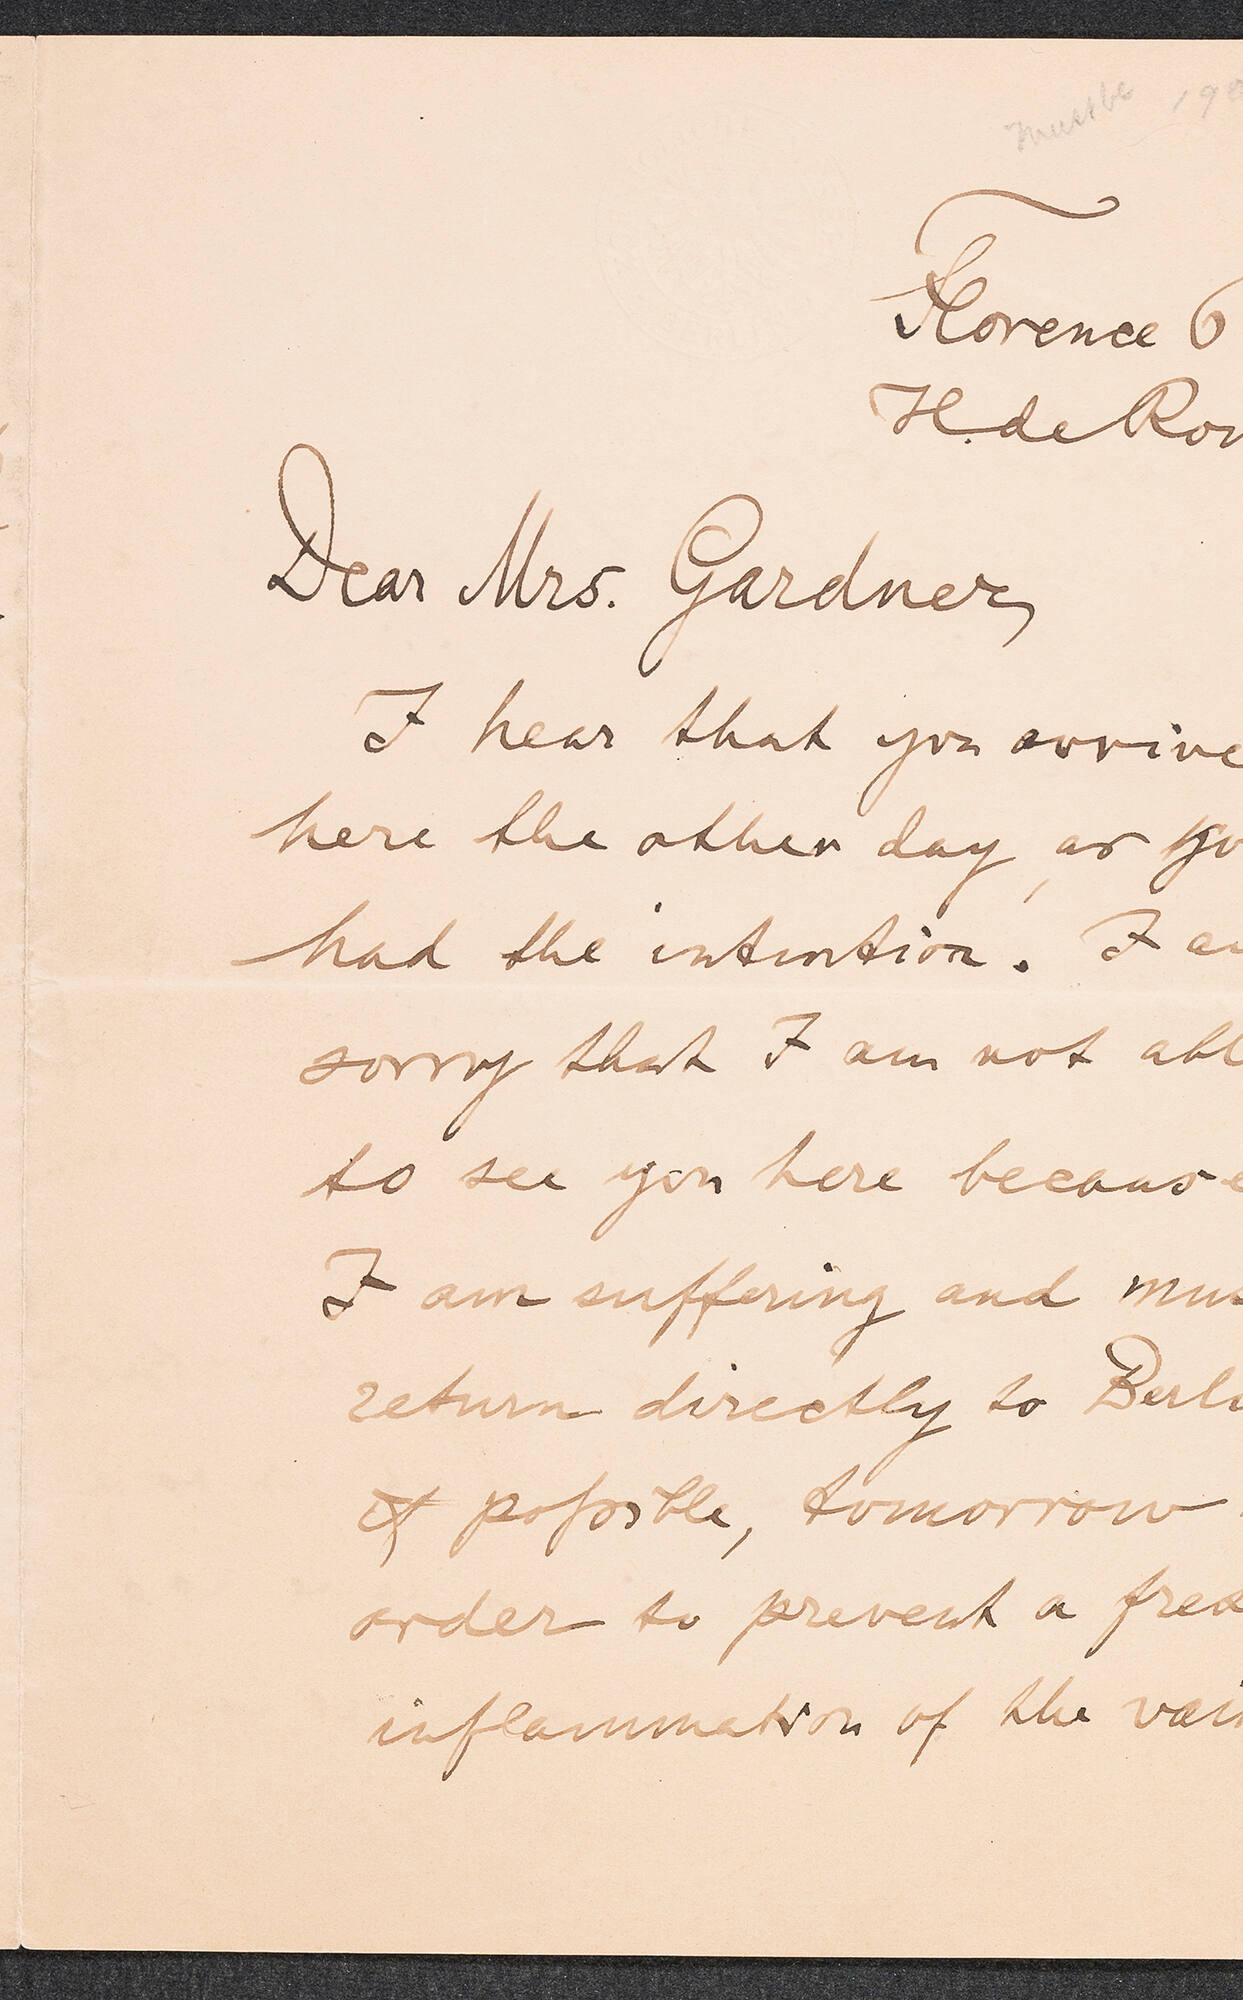 Must be 190
Florence 6
H. de Rom
Dear Mrs. Gardner,
I hear that you arrive
here the other day, as yo
had the intention. I am
sorry that I am not abl
to see you here because
I am suffering and mus
return directly to Berli
if possible, tomorrow
order to prevent a fres
inflammation of the vein